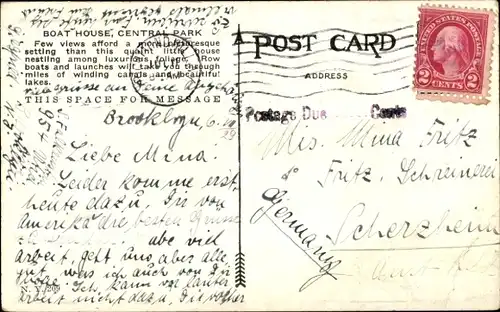 BOAT HOUSE, CENTRAL PARK
Few views afford a more picturesque
setting than this quaint little house
nestling among luxurious foliage. (Row
boats and launches will take you through
miles of winding canals and beautiful
lakes.
THIS SPACE FOR MESSAGE
Brooklyn, 6.
Liebe Mina.
Leider komme erst
heute dazu, Dir von
Amerika die besten Grüsse
zu senden. abe viel
arbeit, geht uns aber alle
gut, was ich auch von Dir
hoffe. Ich kann vor lauter
arbeit nicht dazu, Dir vorher
N. Y. 209
POST CARD
ADDRESS
UNITED STATES POSTAGE
2 CENTS 2
Postage Due Cents
Mrs. Mina Fritz
Fritz, Schreinerei
Scherzheim
Amt
Germany